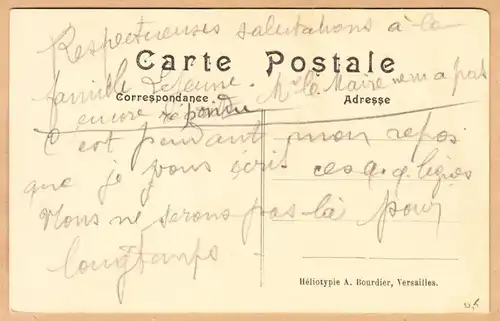 Respectueuses salutations à la
Carte Postale
famille Lejeune. Mr le Maire ne m a pas
Correspondance
Adresse
encore répondu
C est pendant mon repos
que je vous écris ces q.q. lignes
Nous ne serons pas là pour
longtemps.
Héliotypie A. Bourdier, Versailles.